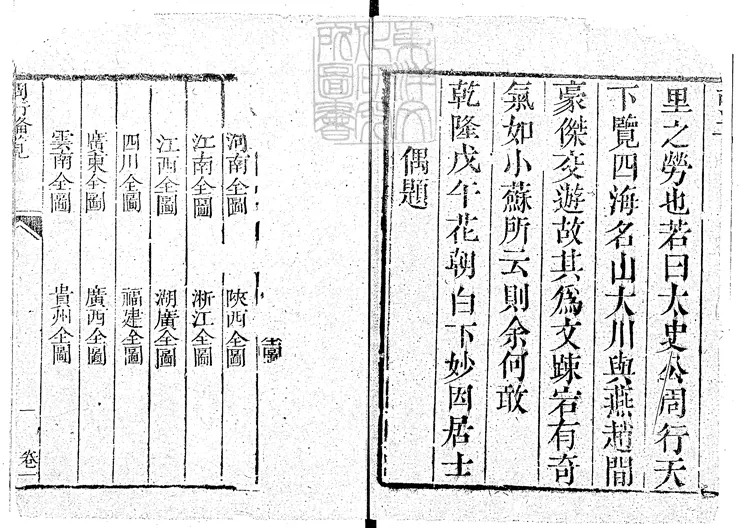 里之勞也若曰太史公周行天
下覽四海名山大川與燕趙間
豪傑交遊故其爲文疎宕有奇
氣如小蘇所云則余何敢
乾隆戊午花朝白下妙因居士
偶題
河南全圖 陝西全圖
江南全圖 浙江全圖
江西全圖 湖廣全圖
四川全圖 福建全圖
廣東全圖 廣西全圖
雲南全圖 貴州全圖
卷一